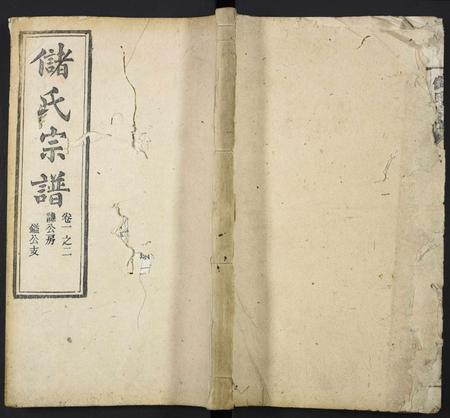 儲氏宗譜
卷一之二
謙公房
鑑公支